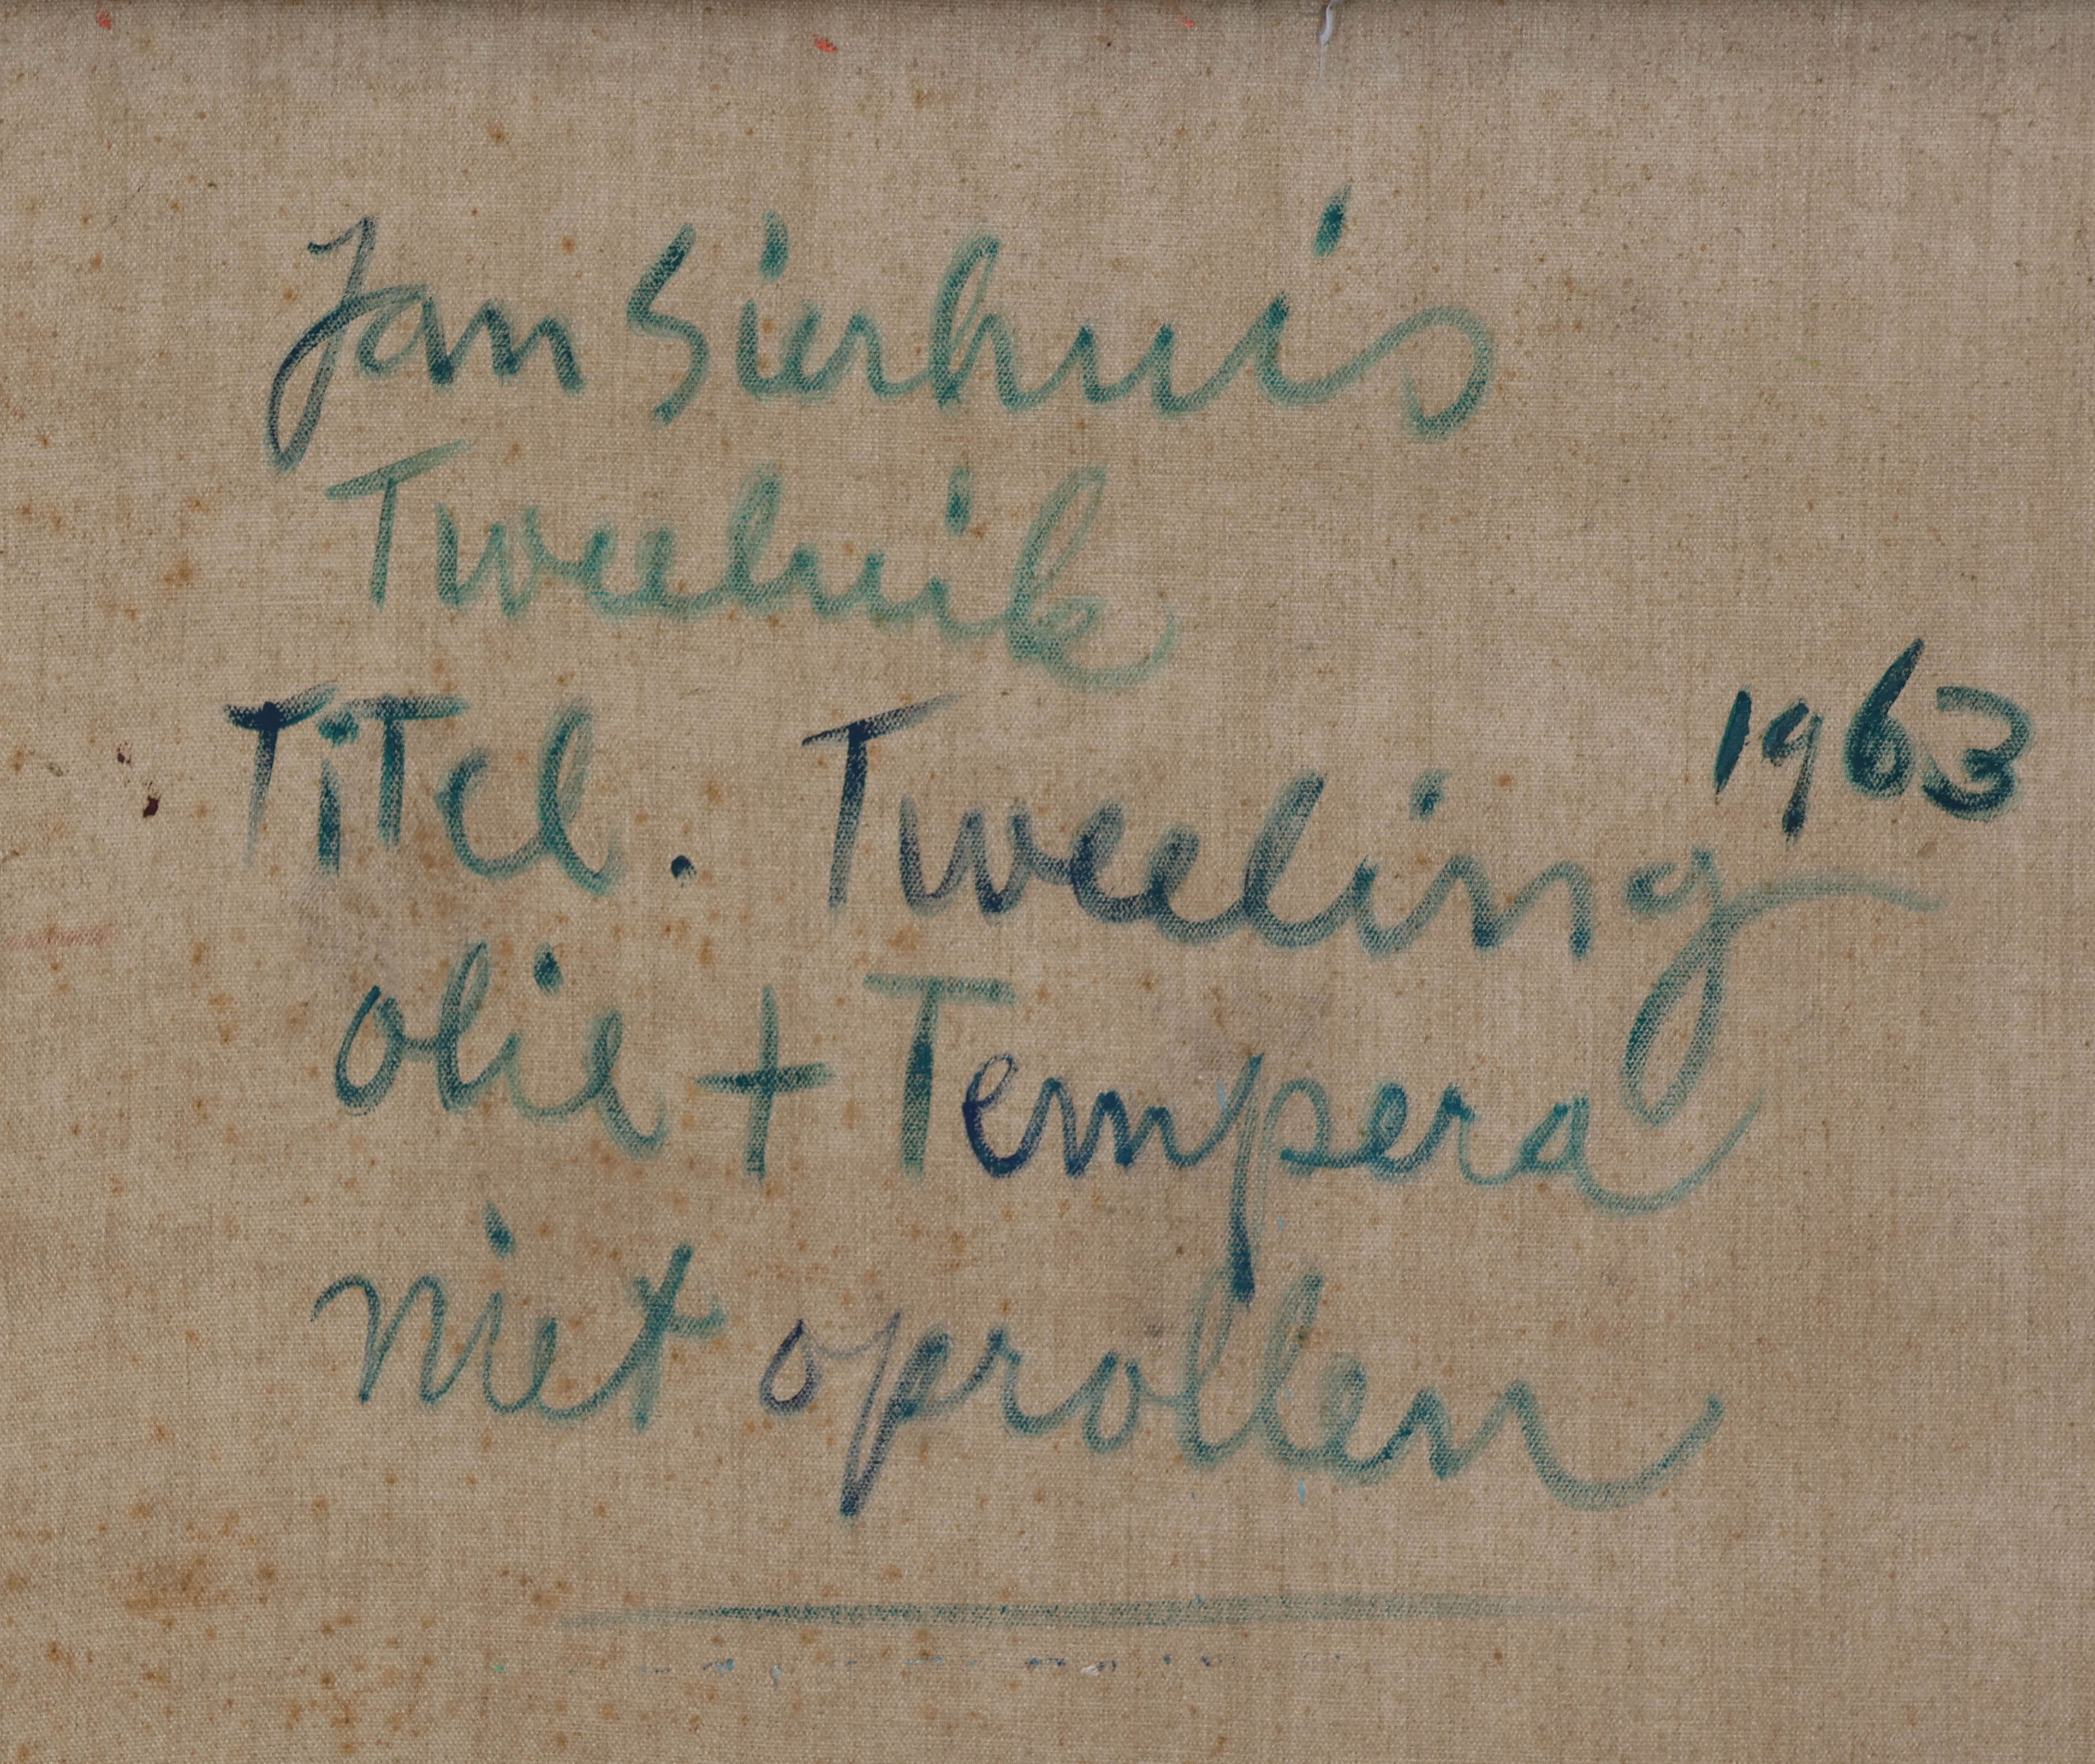 Jan Sierhuis
Tweeluik
TiTel. Tweeling 1963
olie + Tempera
niet oprollen